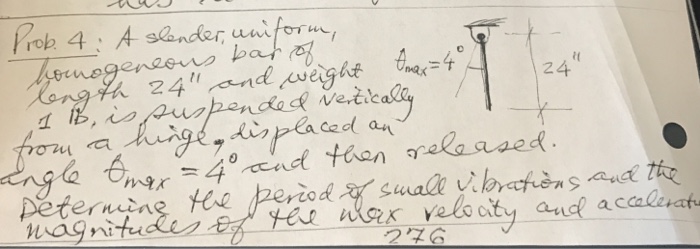 Prob. 4: A slender, uniform,
homogeneous bar of
length 24" and weight
θmax = 4°
24"
1 lb, is suspended vertically
from a hinge, displaced an
angle θmax = 4° and then released.
Determine the period of small vibrations and the
magnitudes of the max velocity and accelerat
276